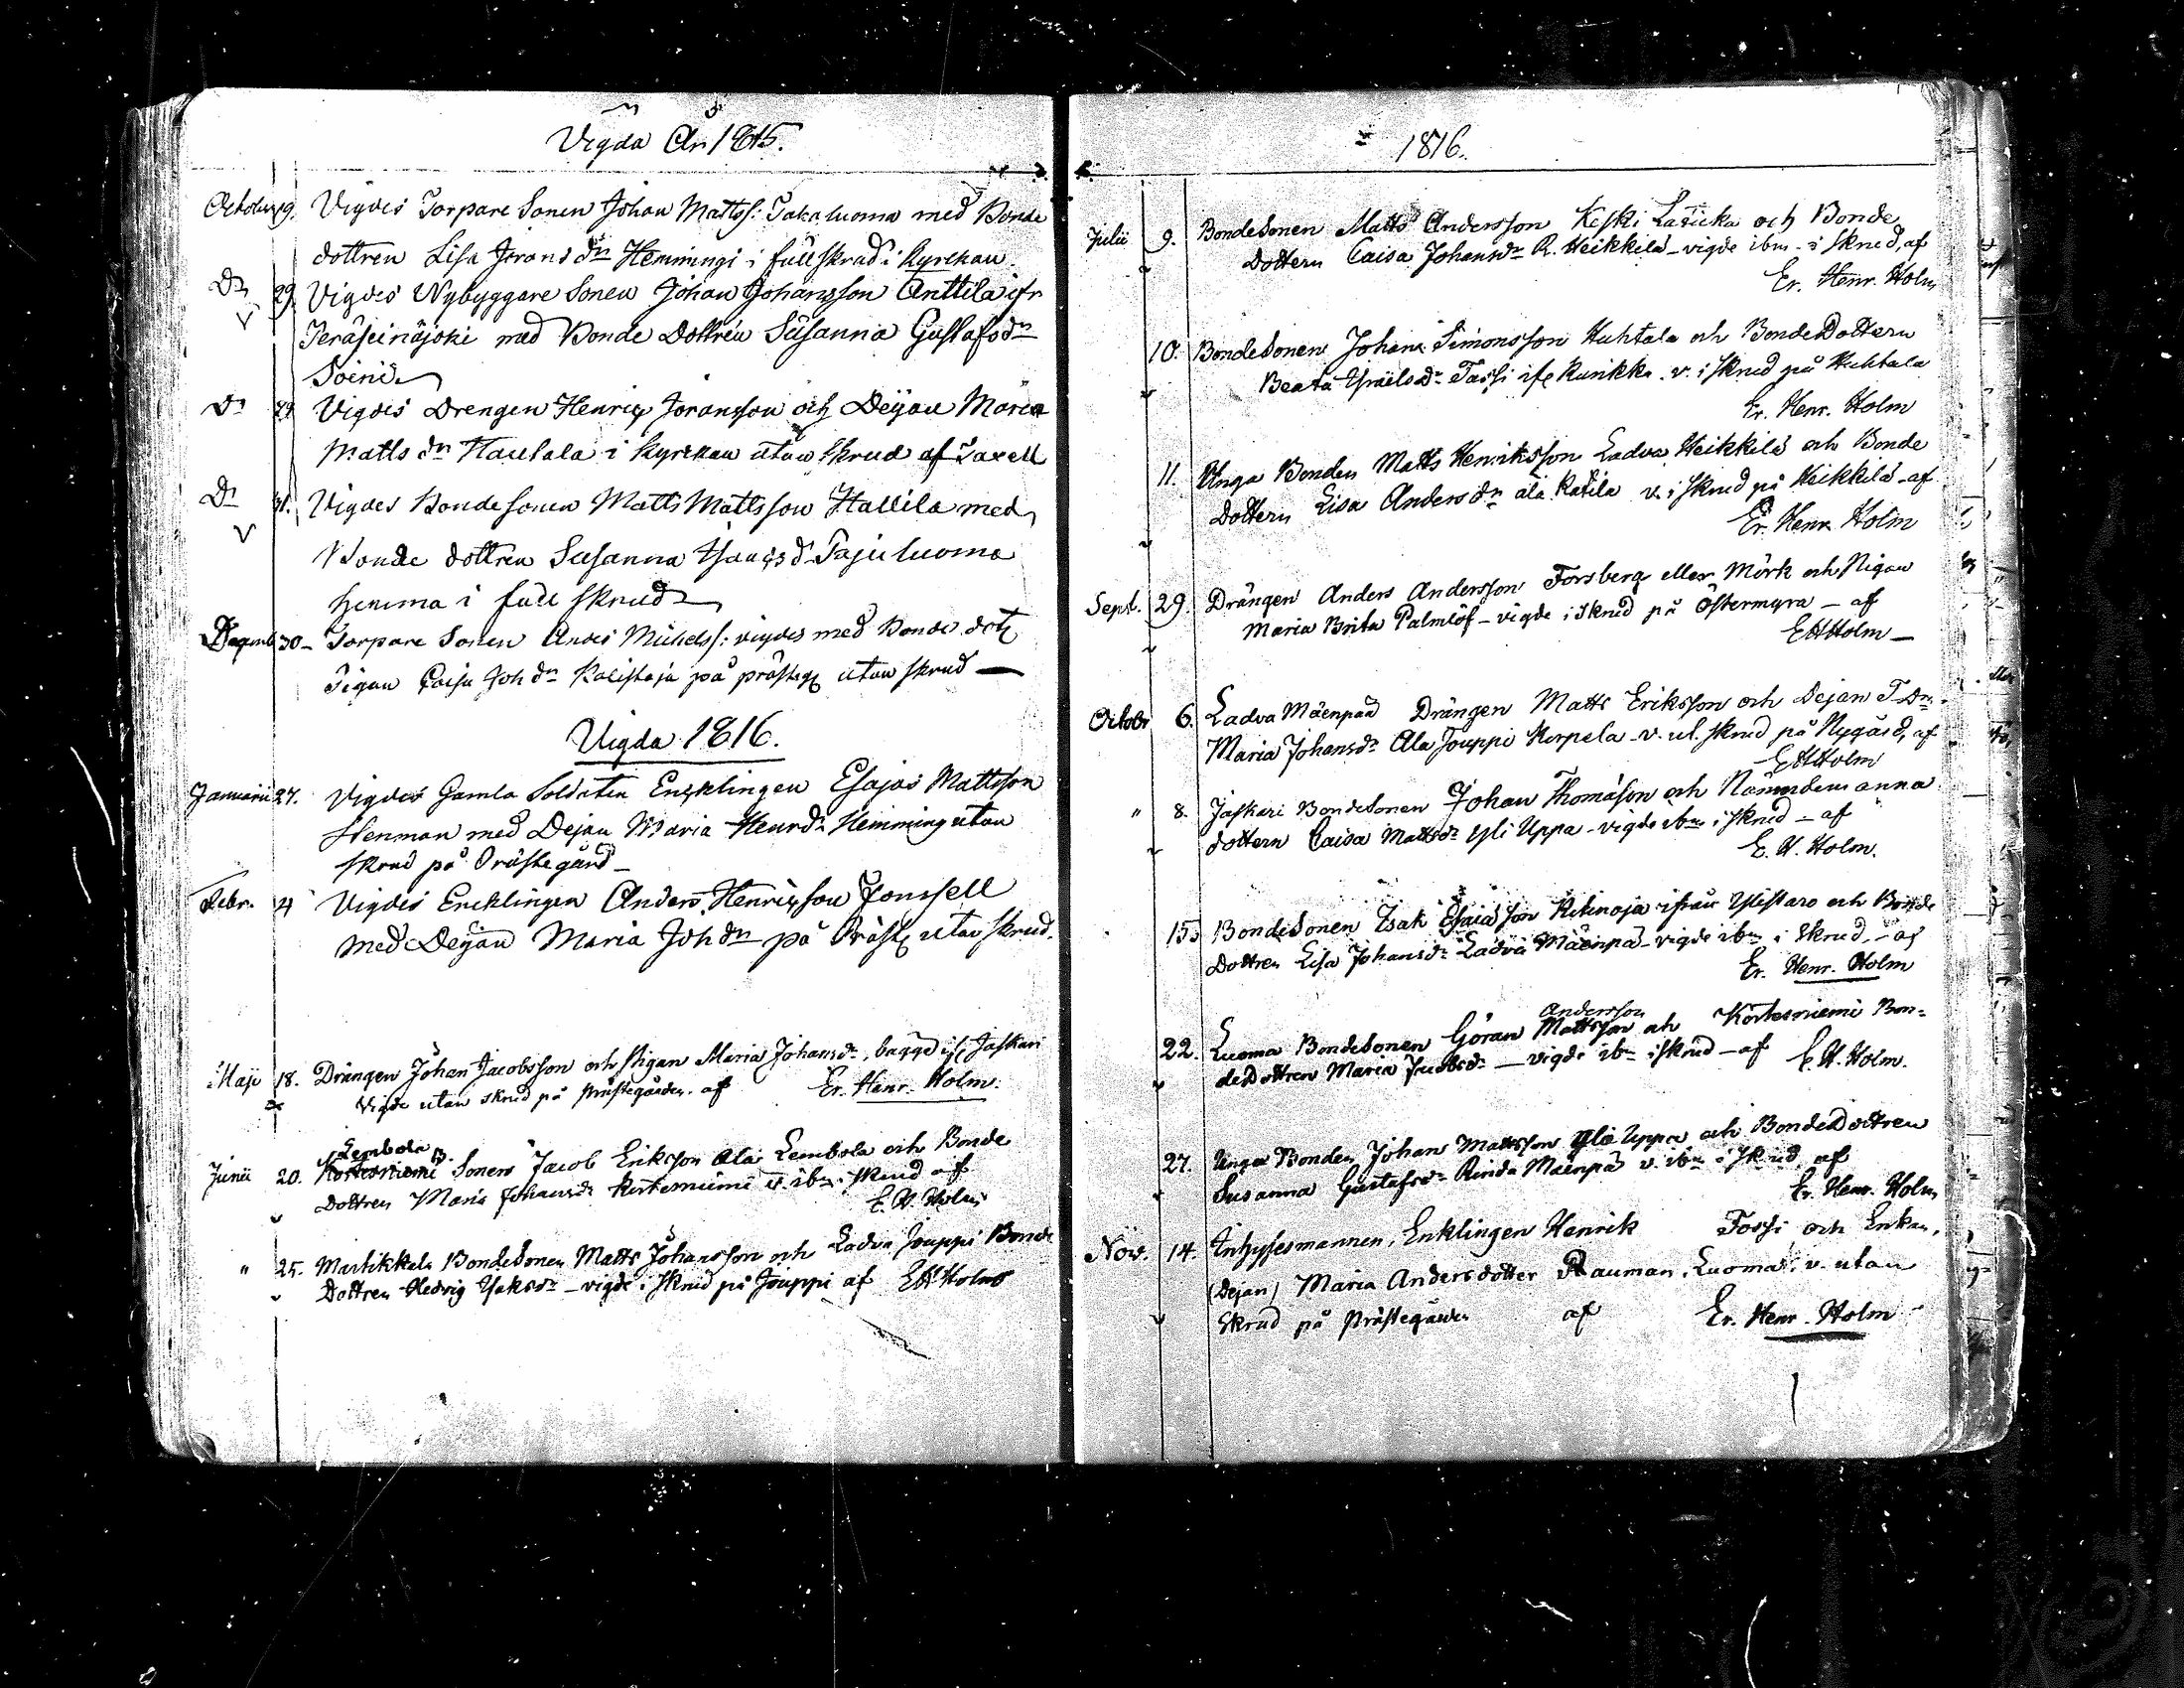 Vigda År 1815.
October 19. Vigdes Torpare Sonen Johan Mattss: Takaluoma med Bonde
dottren Lisa Jörans dr Hemmingi i full skrud i Kyrckan.
Do 29. Vigdes Nybyggare Sonen Johan Johansson Anttila ifr
Peräseinäjoki med Bonde Dottren Susanna Gustafsdr
Soini
Do 29 Vigdes Drengen Henric Joransson och Deijan Maria
Matts dr Hautala i Kyrckan utan skrud af Taxell
Do 31. Vigdes Bondesonen Matts Mattsson Hallila med
Bonde dottren Susanna Isaacs d. Pajuluoma
hemma i full skrud
Decemb 30 - Torpare Sonen Anders Michelss: vigdes med Bonde dott
Pigan Caisa Joh dr på prästeg utan skrud —
Vigda 1816.
Januarii 27. Vigdes Gamla Soldaten Encklingen Esajas Mattsson
Henman med Dejan Maria Henrdr Hemming utan
skrud på Prästegård -
Febr. 4 Vigdes Encklingen Anders Henricson Jonssell
med Dejan Maria Joh dr på Präst utan skrud.
Maji 18. Drängen Johan Jacobsson och Pigan Maria Johansdr, bägge if Jaskari
Vigde utan skrud på Prästegården. af Er. Henr. Holm.
Lembola B.
Junii 20. Kortesniemi Sonen Jacob Eriksson Ala Lembola och Bonde
Dottren Maria Johansdr Kortesniemi v. ibm i skrud af
E. H. Holm
" 25. Martikkala BondeSonen Matts Johansson och Ladva Jouppi Bonde
Dottren Hedvig Isaksdr - vigde i skrud på Jouppi af EHHolm
1816.
Julii 9. BondeSonen Matts Andersson Keski och Bonde
Dottern Caisa Johansdr R. Heikkilä - vigde ibm - i skrud, af
Er. Henr. Holm
10. BondeSonen Johan Simonsson Huhtala och BondeDottern
Beata Israelsdr ifr Kurikka. v. i skrud på Huhtala
Er. Henr. Holm
11. Unga Bonden Matts Henriksson Ladva Heikkilä och Bonde
Dottern Lisa Anders dr ala Katila v. i skrud på Heikkilä - af
Er. Henr. Holm
Sept. 29. Drängen Anders Andersson Forsberg eller Mörk och Pigan
Maria Brita Palmlöf - vigde i skrud på Östermyra - af
EHHolm -
Octobr 6. Ladva Mäenpää Drängen Matts Eriksson och Dejan T Dr.
Maria Johansdr Ala Jouppi Korpela - v. ut. skrud på Nygård, af
EHHolm
" 8. Jaskari BondeSonen Johan Thomasson och Nämndemanna
dottern Caisa Mattsdr Yli Uppa - vigde ibm i skrud - af
E. H. Holm.
15. BondeSonen Isak Esaiasson Ritinoja ifrån Ylistaro och Bonde
Dottren Lisa Johansdr Ladva Mäenpää - vigde ibm i skrud, - af
Er. Henr. Holm
Andersson
22. Luoma BondeSonen Göran Mattsson och Kortesniemi Bon=
deDottren Maria Jacobsdr — vigde ibm i skrud - af E. H. Holm.
27. Unga Bonden Johan Mattsson Yli Uppa och BondeDottren
Susanna Gustafsdr Rinda Mäenpää v. ibm i skrud af
Er. Henr. Holm
Nov. 14. Inhysesmannen, Enklingen Henrik Fossi och Enkan,
(Dejan) Maria Andersdotter Rauman, Luoma, v. utan
Skrud på Prästegården af Er. Henr. Holm